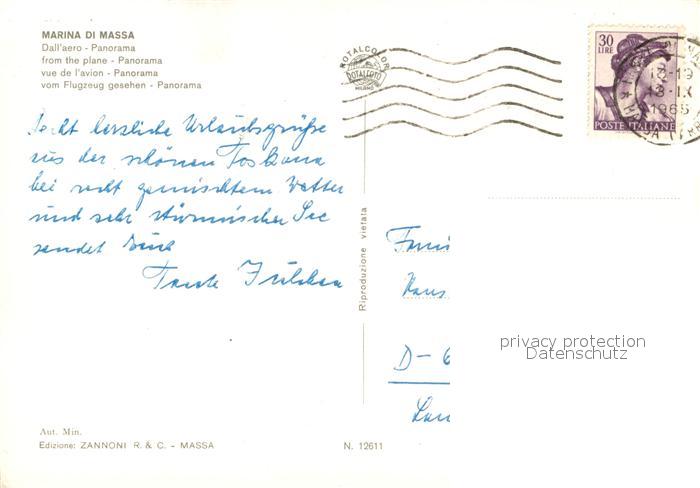 MARINA DI MASSA
Dall'aero - Panorama
from the plane - Panorama
vue de l'avion - Panorama
vom Flugzeug gesehen - Panorama
ROTALCOLOR
ROTALFOTO
MILANO
30
LIRE
POSTE ITALIANE
13-IX
1965
Recht herzliche Urlaubsgrüße
aus der schönen Toskana
bei recht gemischtem Wetter
und sehr stürmischer See
sendet Euch
Tante
Riproduzione vietata
Fami
Hans
D-6
privacy protection
Datenschutz
Aut. Min.
Edizione: ZANNONI R. & C. - MASSA
N. 12611